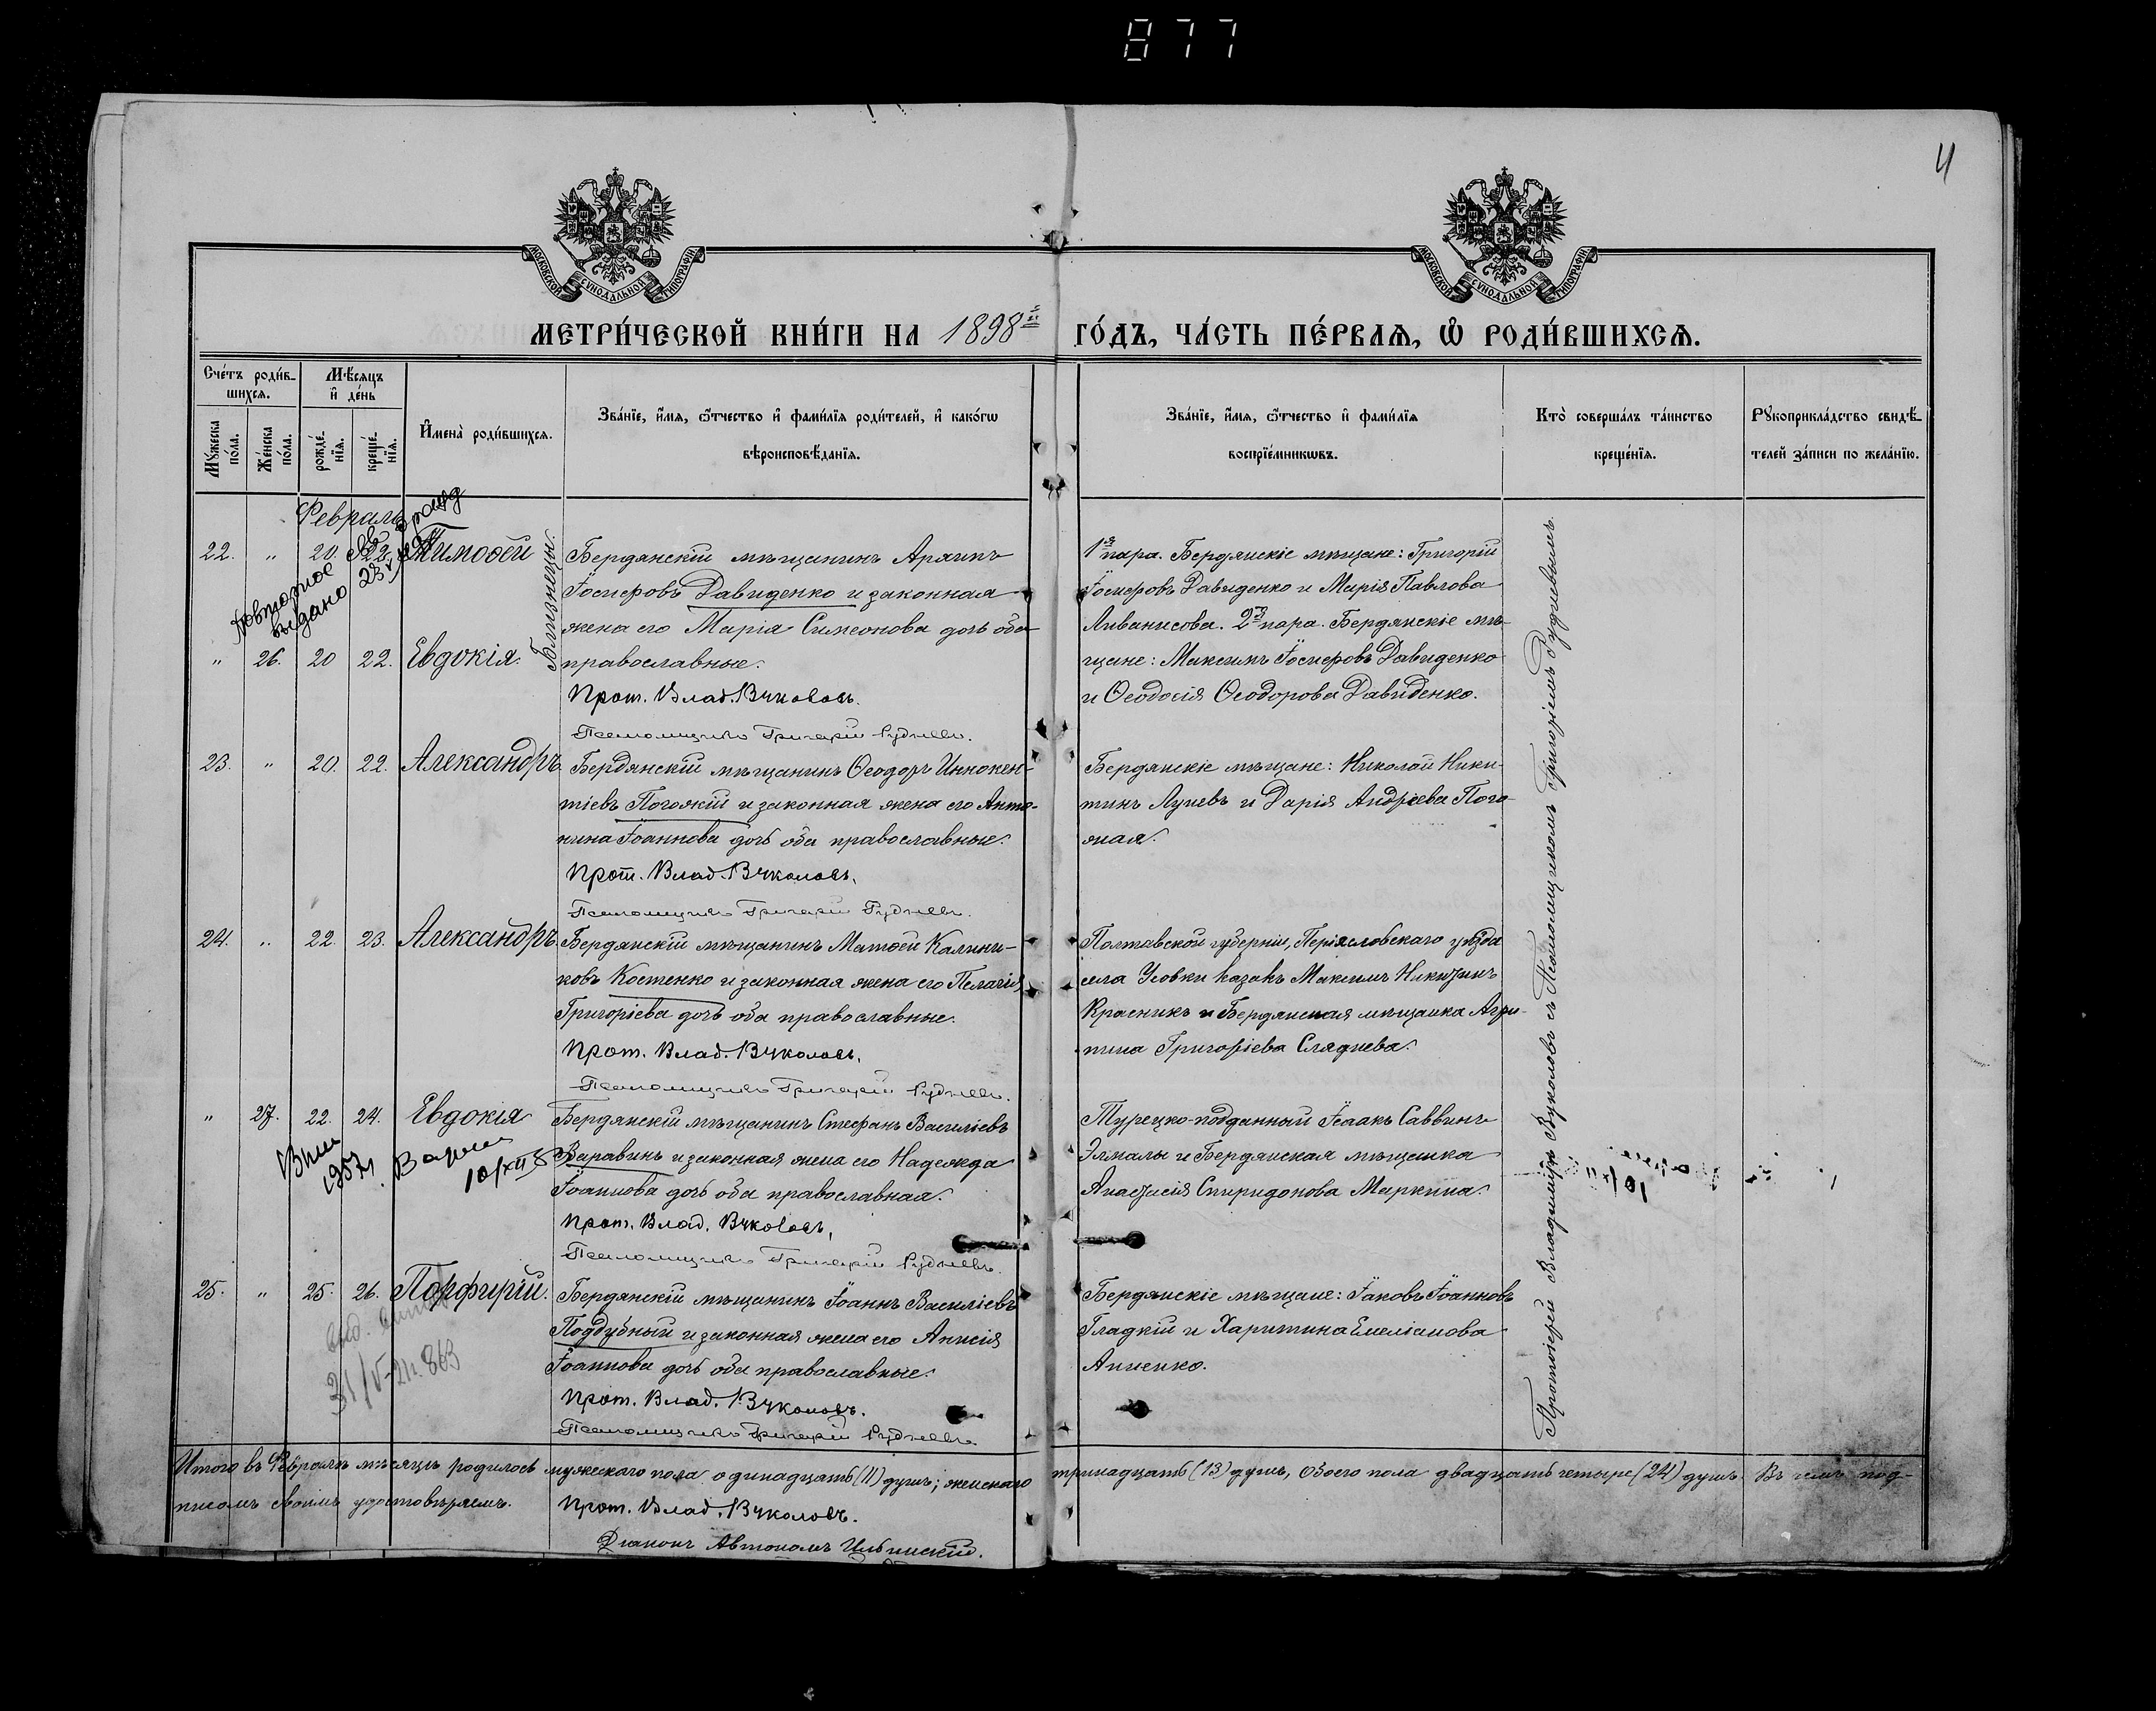 877
4
МОСКОВСКОЙ СѴНОДАЛЬНОЙ ТИПОГРАФІИ
МОСКОВСКОЙ СѴНОДАЛЬНОЙ ТИПОГРАФІИ
МЕТРИ́ЧЕСКОЙ КНИ́ГИ НА 1898й ГО́ДЪ, ЧА́СТЬ ПЕ́РВАЯ, Ѡ РОДИ́ВШИХСЯ.
Сче́тъ роди́в-
шихся.
Мѣ́сяцъ
и де́нь
Му́жеска
по́ла.
Же́нска
по́ла.
рожде́-
нїя.
креще́-
нїя.
И҆мена̀ роди́вшихся.
Зва́нїе, и҆́мя, ѻ҆́тчество и҆ фами́лїя роди́телей, и҆ како́гѡ
вѣроисповѣ́данїя.
Зва́нїе, и҆́мя, ѻ҆́тчество и҆ фами́лїя
воспрїе́мникѡвъ.
Кто̀ соверша́лъ та́инство
креще́нїя.
Рꙋкоприкла́дство свидѣ́-
телей за́писи по жела́нїю.
Февраль
22. " 20. 22. Тимоѳей
Повторное
выдано 23
Близнецы.
Бердянскій мѣщанинъ Архипъ
Іосифовъ Давиденко и законная
жена его Марія Симеонова дочь оба
" 26. 20 22. Евдокія. православные.
Прот. Влад. Вуколовъ.
Псаломщикъ Григорій Рудневъ.
1я пара. Бердянскіе мѣщане: Григорій
Іосифовъ Давиденко и Марія Павлова
Ливанисова. 2я пара. Бердянскіе мѣ-
щане: Максимъ Іосифовъ Давиденко
и Ѳеодосія Ѳеодорова Давиденко.
23. " 20. 22. Александръ. Бердянскій мѣщанинъ Ѳеодоръ Иннокен-
тіевъ Погожій и законная жена его Анто-
нина Іоаннова дочь оба православные.
Прот. Влад. Вуколовъ.
Псаломщикъ Григорій Рудневъ.
Бердянскіе мѣщане: Николай Ники-
тинъ Луневъ и Дарія Андреева Пого-
жая.
24. " 22. 23. Александръ. Бердянскій мѣщанинъ Матѳей Калини-
ковъ Костенко и законная жена его Пелагія
Григоріева дочь оба православные.
Прот. Влад. Вуколовъ.
Псаломщикъ Григорій Рудневъ.
Полтавской губерніи, Переяславскаго уѣзда
села Усовки казакъ Максимъ Никитинъ
Красникъ и Бердянская мѣщанка Агри-
пина Григоріева Сляднева.
" 27. 22. 24. Евдокія Бердянскій мѣщанинъ Стефанъ Василіевъ
Варавинъ и законная жена его Надежда
Іоаннова дочь оба православная.
Прот. Влад. Вуколовъ.
Псаломщикъ Григорій Рудневъ.
1957г.
10/XII
Турецко-подданный Исаакъ Саввинъ
Элмалы и Бердянская мѣщанка
Анастасія Спиридонова Маркина.
25. " 25. 26. Порфирій. Бердянскій мѣщанинъ Іоаннъ Василіевъ
Поддубный и законная жена его Анисія
Іоаннова дочь оба православные.
Прот. Влад. Вуколовъ.
Псаломщикъ Григорій Рудневъ.
31/V-21г. 863
Бердянскіе мѣщане: Іаковъ Іоанновъ
Гладкій и Харитина Емеліанова
Аниенко.
Протоіерей Владиміръ Вуколовъ съ Псаломщикомъ Григоріемъ Рудневымъ.
Итого въ Февралѣ мѣсяцѣ родилось мужескаго пола одинадцать (11) душъ; женскаго тринадцать (13) душъ, обоего пола двадцать четыре (24) душъ. Въ чемъ под-
писомъ своимъ удостовѣряемъ. Прот. Влад. Вуколовъ.
Діаконъ Автономъ Ильинскій.